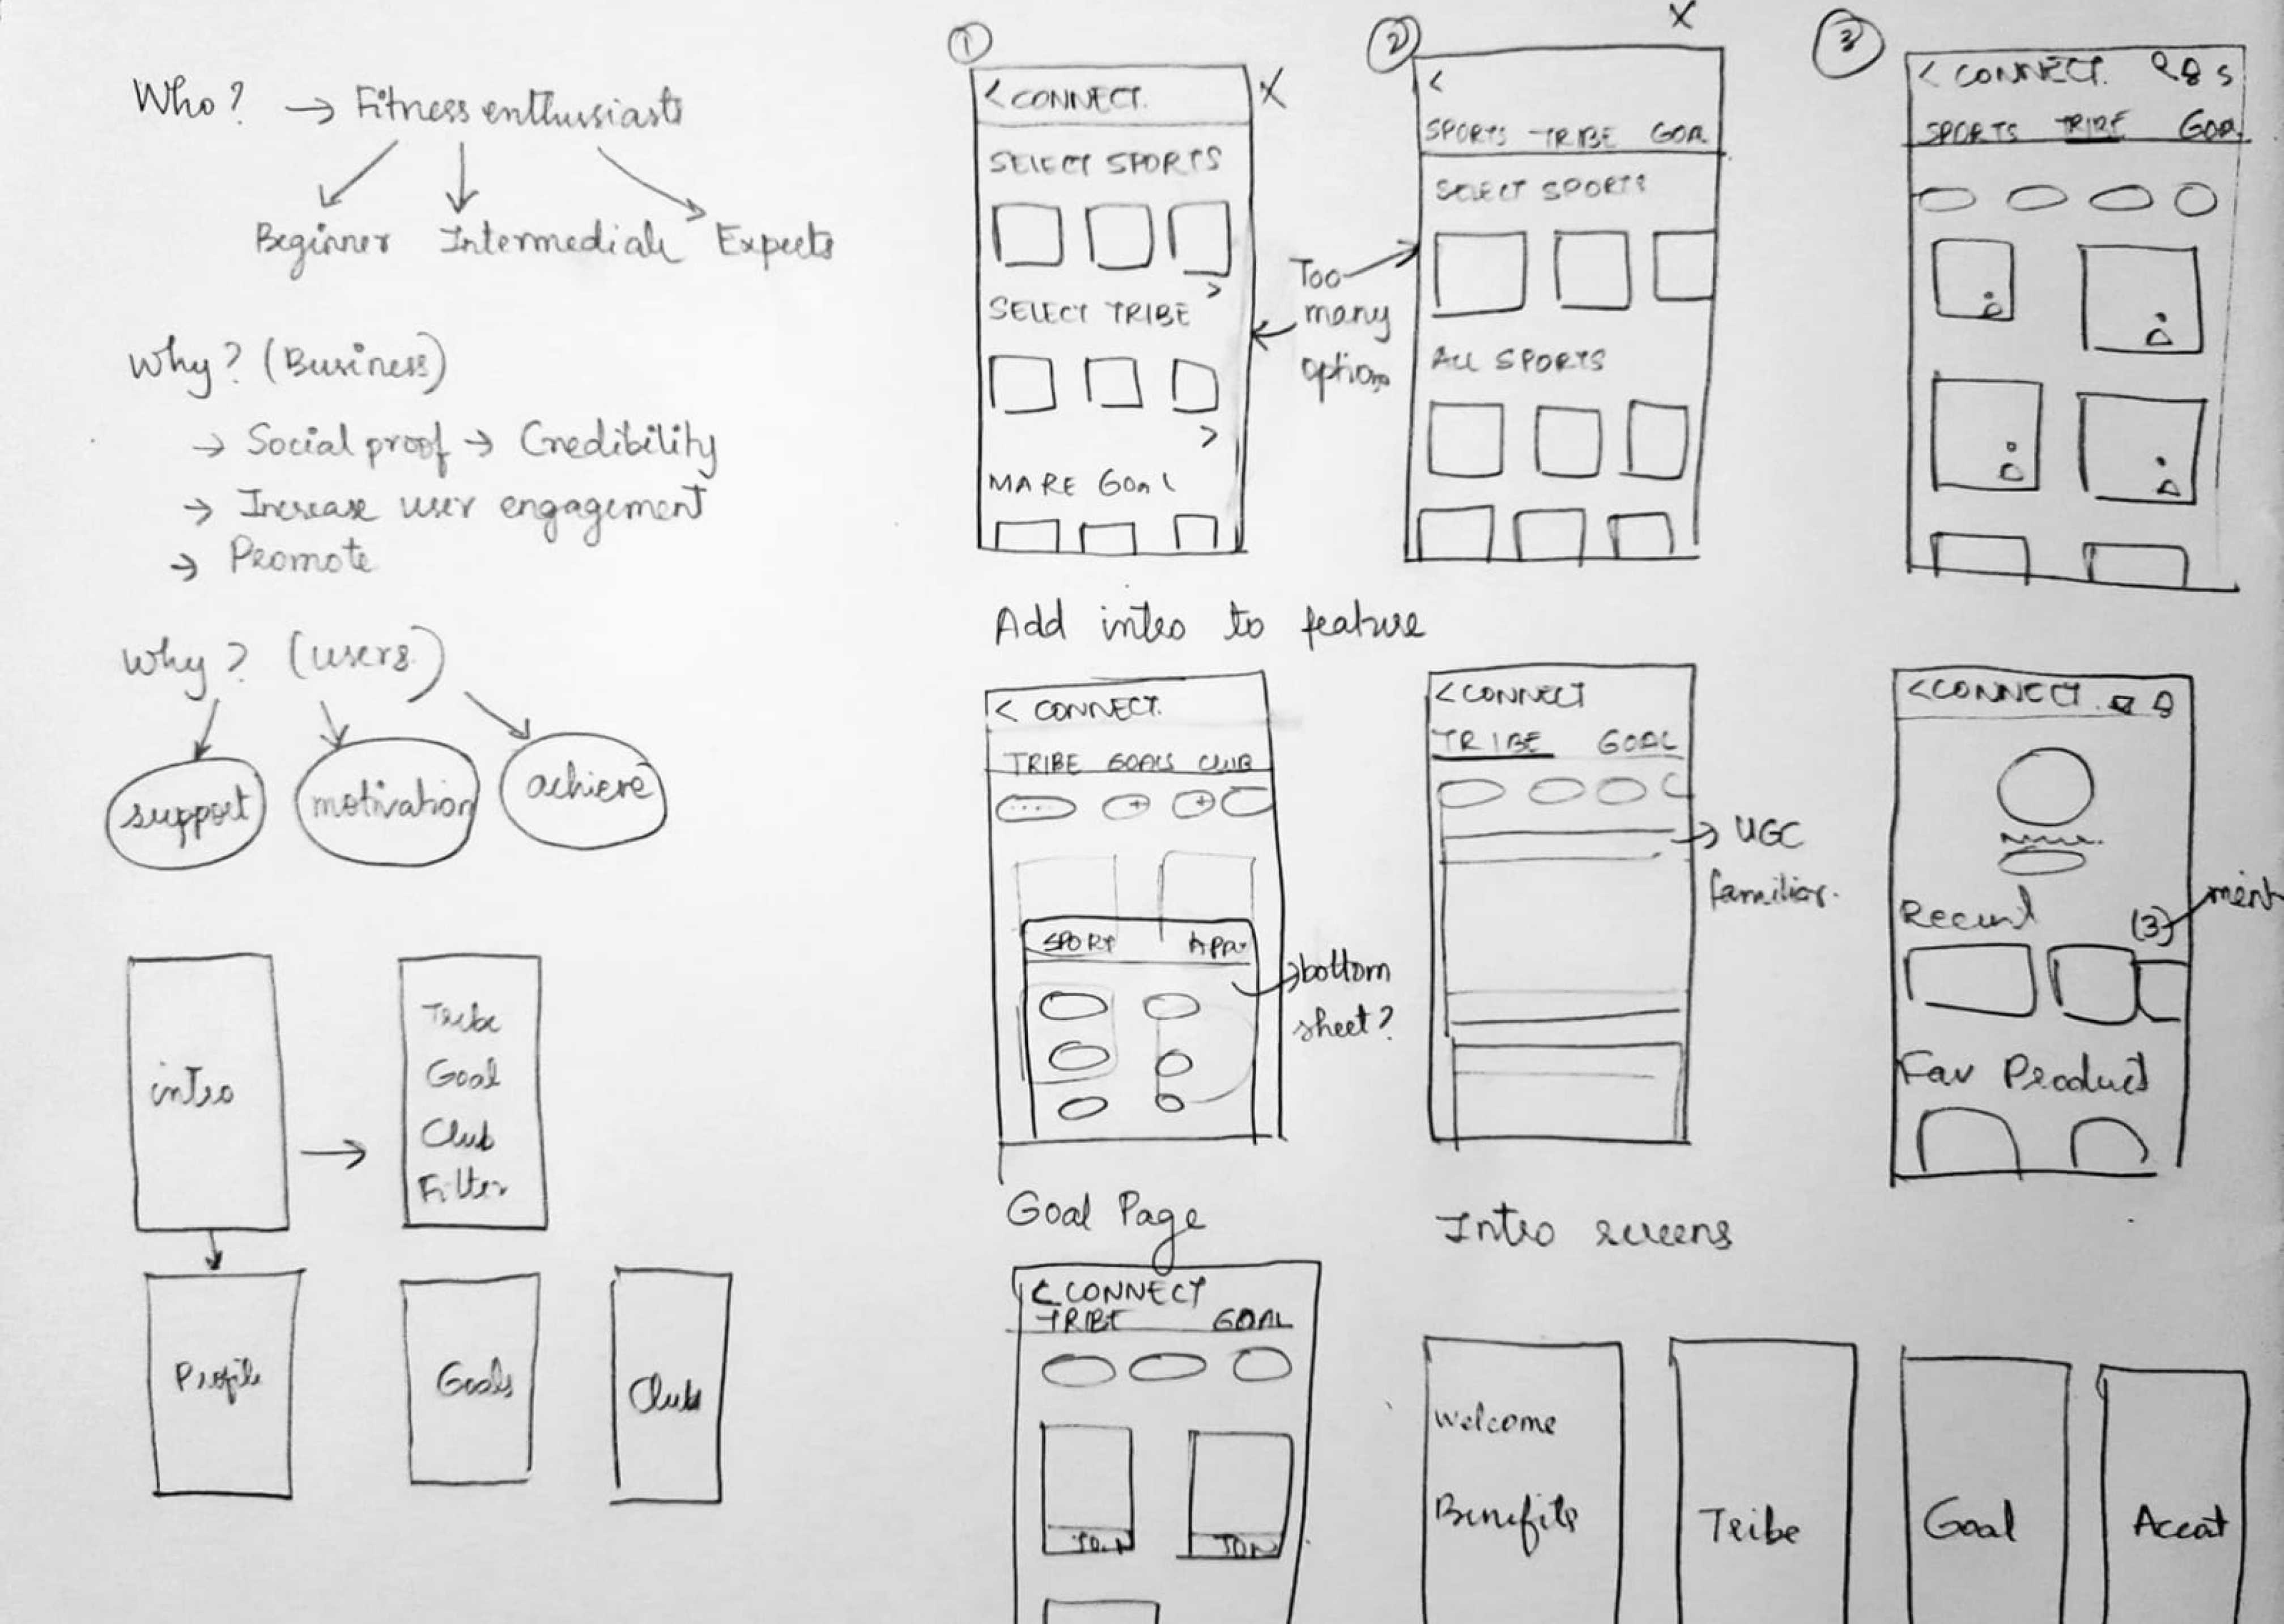 Who? → Fitness enthusiasts
Beginner Intermediate Experts
Why? (Business)
→ Social proof → Credibility
→ Increase user engagement
→ Promote
Why? (users)
support motivation achieve
intro
Tribe
Goal
Club
Filter
Profile
Goals
Club
①
X
< CONNECT.
SELECT SPORTS
>
SELECT TRIBE
>
MAKE GOAL
Too
many
options
②
X
<
SPORTS TRIBE GOAL
SELECT SPORTS
ALL SPORTS
③
< CONNECT.
SPORTS TRIBE GOAL
Add intro to feature
< CONNECT.
TRIBE GOALS CLUB
SPORT
bottom
sheet?
< CONNECT
TRIBE GOAL
→ UGC
familiar.
< CONNECT.
Recent
(3)
Fav Product
Goal Page
< CONNECT
TRIBE GOAL
JOIN JOIN
Intro screens
Welcome
Benefits
Tribe
Goal